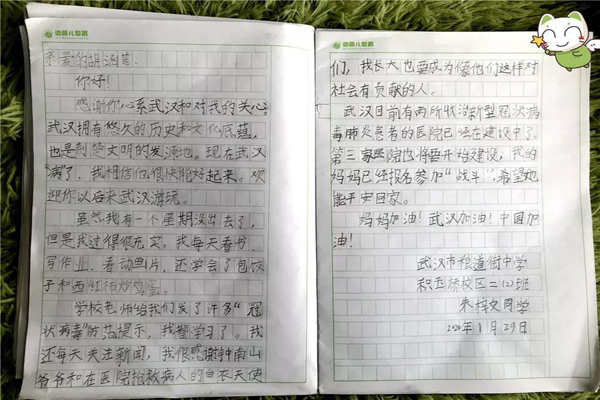 亲爱的胡涵莲：
你好！
感谢你心系武汉和对我的关心。
武汉拥有悠久的历史和文化底蕴，
也是荆楚文明的发源地。现在武汉
“病”了，我相信他很快能好起来。欢
迎你以后来武汉游玩。
虽然我有一个星期没出去了，
但是我过得很充实。我每天看书、
写作业、看动画片，还学会了包饺
子和西红柿炒鸡蛋。
学校老师给我们发了许多“冠
状病毒”防范提示，我都学习了。我
还每天关注新闻，我很感谢钟南山
爷爷和在医院抢救病人的白衣天使
们，我长大也要成为像他们这样对
社会有贡献的人。
武汉目前有两所收治新型冠状病
毒肺炎患者的医院已经在建设中了，
第三家医院也将要开始建设，我的
妈妈已经报名参加“战斗”，希望她
能平安回家。
妈妈加油！武汉加油！中国加
油！
武汉市粮道街中学
积玉桥校区二(2)班
朱梓文同学
2020年1月29日